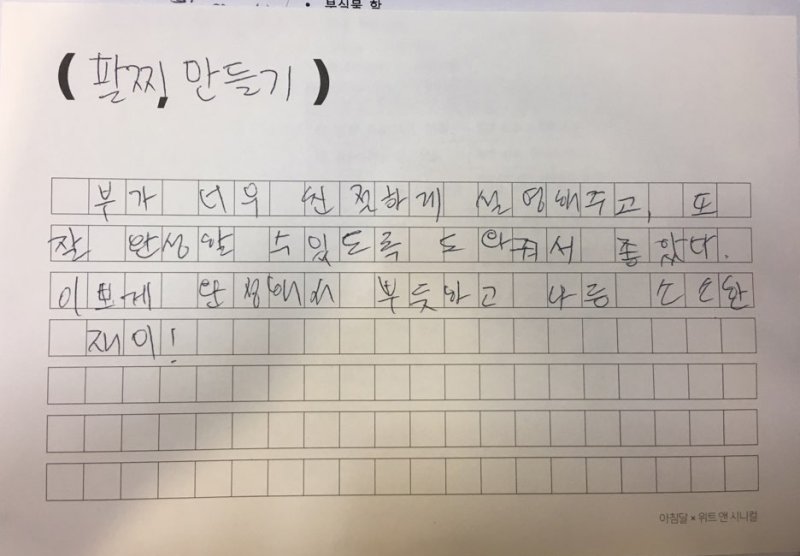 부식물 학
( 팔찌 만들기 )
부가 너무 친절하게 설명해주고, 또
잘 완성할 수 있도록 도와줘서 좋았다.
이쁘게 완성해서 뿌듯하고 나름 소소한
재미!
아침달 × 위트 앤 시니컬